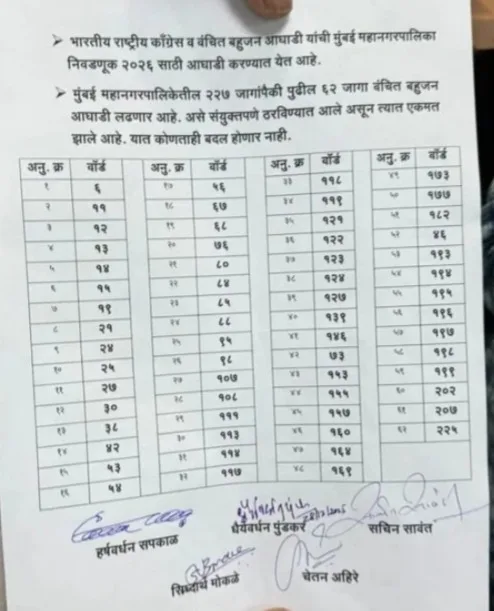 ➤ भारतीय राष्ट्रीय काँग्रेस व वंचित बहुजन आघाडी यांची मुंबई महानगरपालिका
निवडणूक २०२६ साठी आघाडी करण्यात येत आहे.
➤ मुंबई महानगरपालिकेतील २२७ जागांपैकी पुढील ६२ जागा वंचित बहुजन
आघाडी लढणार आहे. असे संयुक्तपणे ठरविण्यात आले असून त्यात एकमत
झाले आहे. यात कोणताही बदल होणार नाही.
अनु. क्र वॉर्ड
१ ६
२ ११
३ १२
४ १३
५ १४
६ १५
७ १९
८ २१
९ २४
१० २५
११ २७
१२ ३०
१३ ३८
१४ ४२
१५ ५३
१६ ५४
अनु. क्र वॉर्ड
१७ ५६
१८ ६७
१९ ६८
२० ७६
२१ ८०
२२ ८४
२३ ८५
२४ ८८
२५ ९५
२६ ९८
२७ १०७
२८ १०८
२९ १११
३० ११३
३१ ११४
३२ ११७
अनु. क्र वॉर्ड
३३ ११८
३४ ११९
३५ १२१
३६ १२२
३७ १२३
३८ १२४
३९ १२७
४० १३९
४१ १४६
४२ ७३
४३ १५३
४४ १५५
४५ १५७
४६ १६०
४७ १६४
४८ १६९
अनु. क्र वॉर्ड
४९ १७३
५० १७७
५१ १८२
५२ ४६
५३ १९३
५४ १९४
५५ १९५
५६ १९६
५७ १९७
५८ १९८
५९ १९९
६० २०२
६१ २०७
६२ २२५
हर्षवर्धन सपकाळ
धैर्यवर्धन पुंडकर
सचिन सावंत
सिध्दार्थ मोकळे
चेतन अहिरे